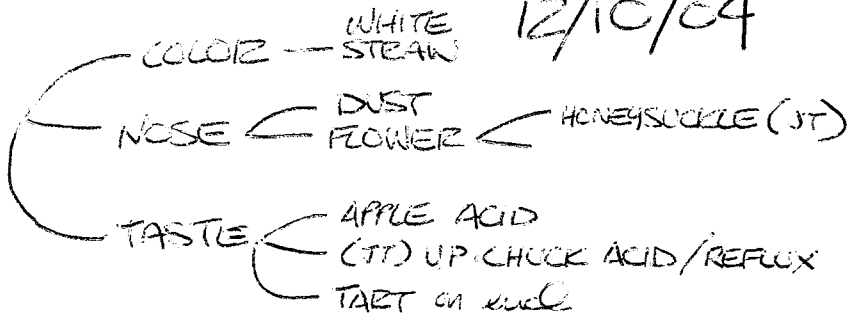 12/10/04
COLOR — WHITE
STRAW
NOSE DUST
FLOWER HONEYSUCKLE (JT)
TASTE APPLE ACID
(JT) UP CHUCK ACID/REFLUX
TART on end